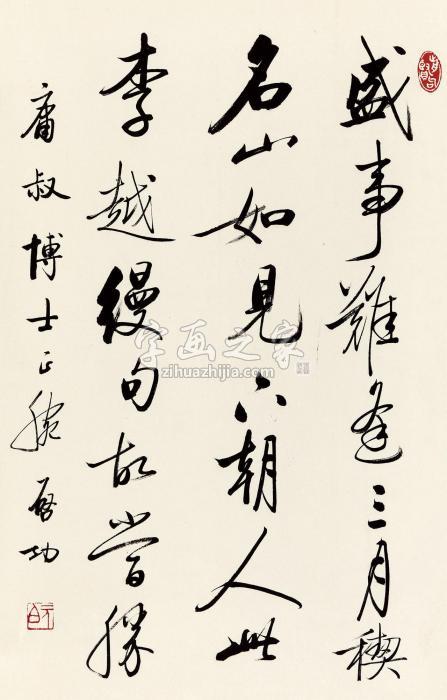 盛事難逢三月禊
名山如見六朝人此
李越縵句故當勝
庸叔博士正腕啓功
字画之家
zihuazhijia.com